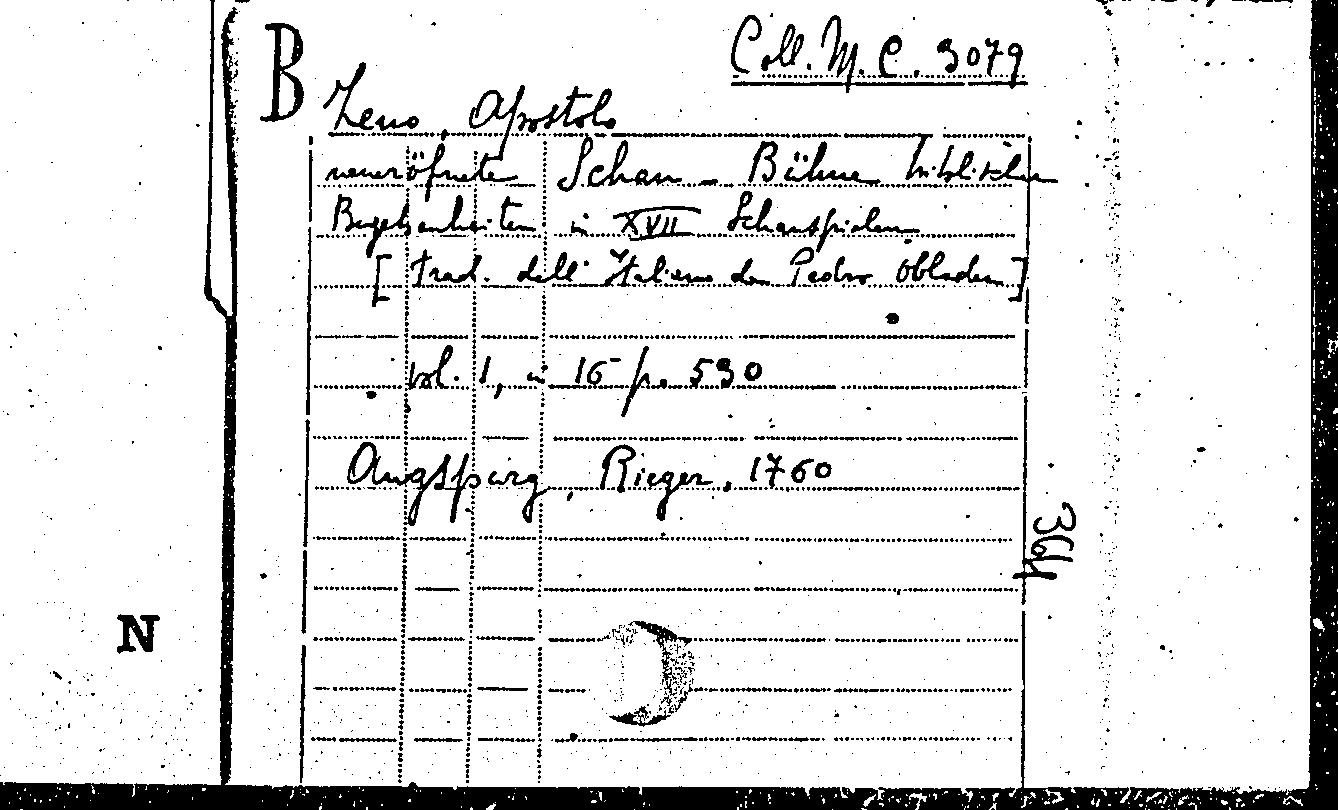 B
Coll. M. C. 3079
Zeno, Apostolo
neueröfnete Schau-Bühne biblischer
Begebenheiten in XVII Schauspielen
[trad. dell'Italiano da Pedro Obladen]
vol. 1, in 16 p. 530
Augspurg, Rieger, 1760
364
N